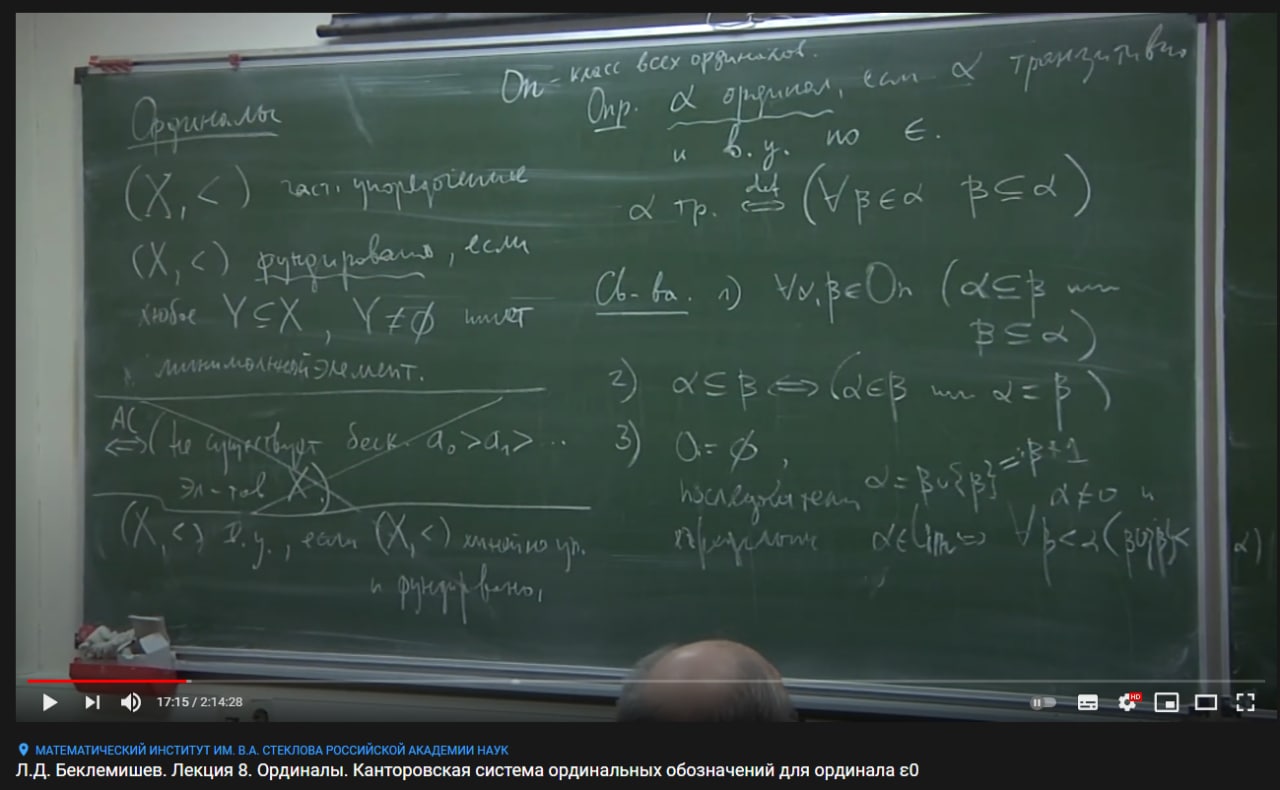 Ординалы
(X, <) част. упорядоченные
(X, <) фундировано, если
любое Y ⊆ X, Y ≠ ∅ имеет
минимальный элемент.
AC
⇔ (не существует беск. a₀ > a₁ > ...
эл-тов X)
(X, <) в.у., если (X, <) линейно уп.
и фундировано.
On - класс всех ординалов.
Опр. α ординал, если α транзитивно
и в.у. по ∈.
α тр. def ⇔ (∀β∈α β⊆α)
Св-ва. 1) ∀α,β∈On (α⊆β или
β⊆α)
2) α⊆β ⇔ (α∈β или α=β)
3) 0 = ∅,
последователи α = β∪{β} =: β+1
предельные α∈Lim ⇔ α≠0 и ∀β<α (β∪{β}<α)
17:15 / 2:14:28
HD
МАТЕМАТИЧЕСКИЙ ИНСТИТУТ ИМ. В.А. СТЕКЛОВА РОССИЙСКОЙ АКАДЕМИИ НАУК
Л.Д. Беклемишев. Лекция 8. Ординалы. Канторовская система ординальных обозначений для ординала ε0